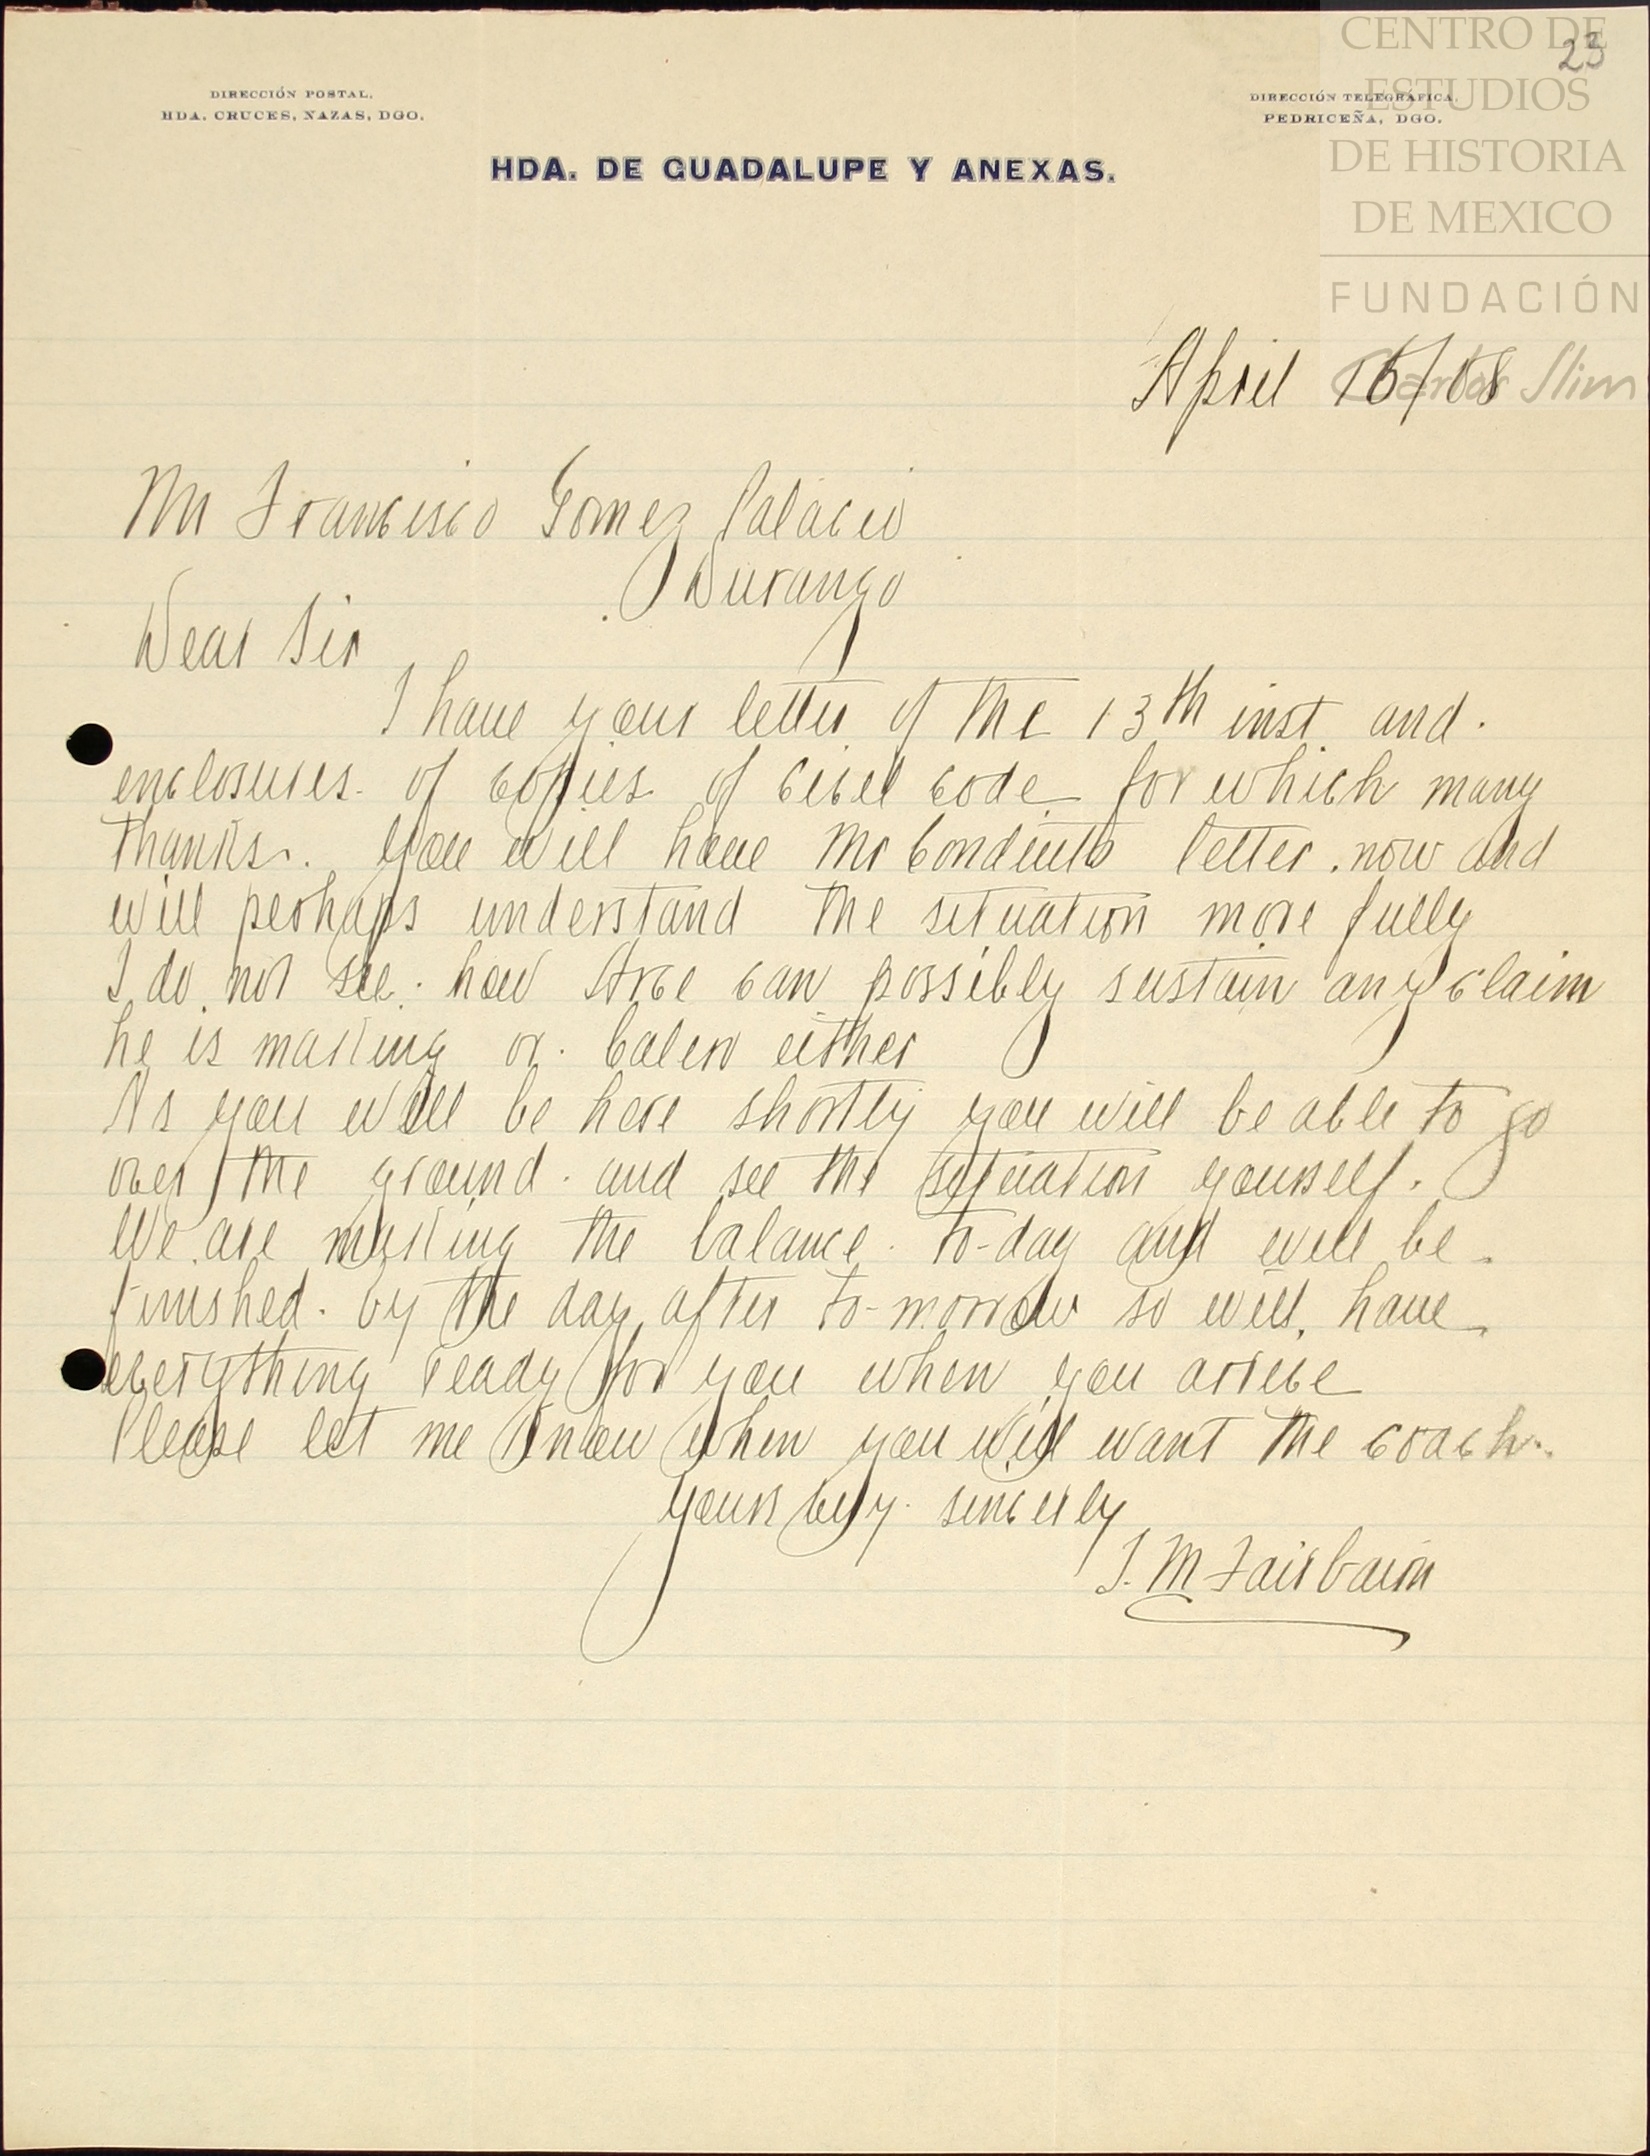 23
CENTRO DE
ESTUDIOS
DE HISTORIA
DE MEXICO
FUNDACIÓN
Carlos Slim
DIRECCIÓN POSTAL,
HDA. CRUCES, NAZAS, DGO.
DIRECCIÓN TELEGRÁFICA,
PEDRICEÑA, DGO.
HDA. DE GUADALUPE Y ANEXAS.
April 16/08
Mr Francisco Gomez Palacio
Durango
Dear Sir
I have your letter of the 13th inst and
enclosures of copies of civel code for which many
thanks. You will have Mr letter now and
will perhaps understand the situation more fully
I do not see how Arce can possibly sustain any claim
he is making or either
As you will be here shortly you will be able to go
over the ground and see the situation yourself.
We are making the balance to-day and will be
finished by the day after to-morrow so will have
everything ready for you when you arrive
Please let me know when you will want the coach.
Yours very sincerly
J. M Fairbairn